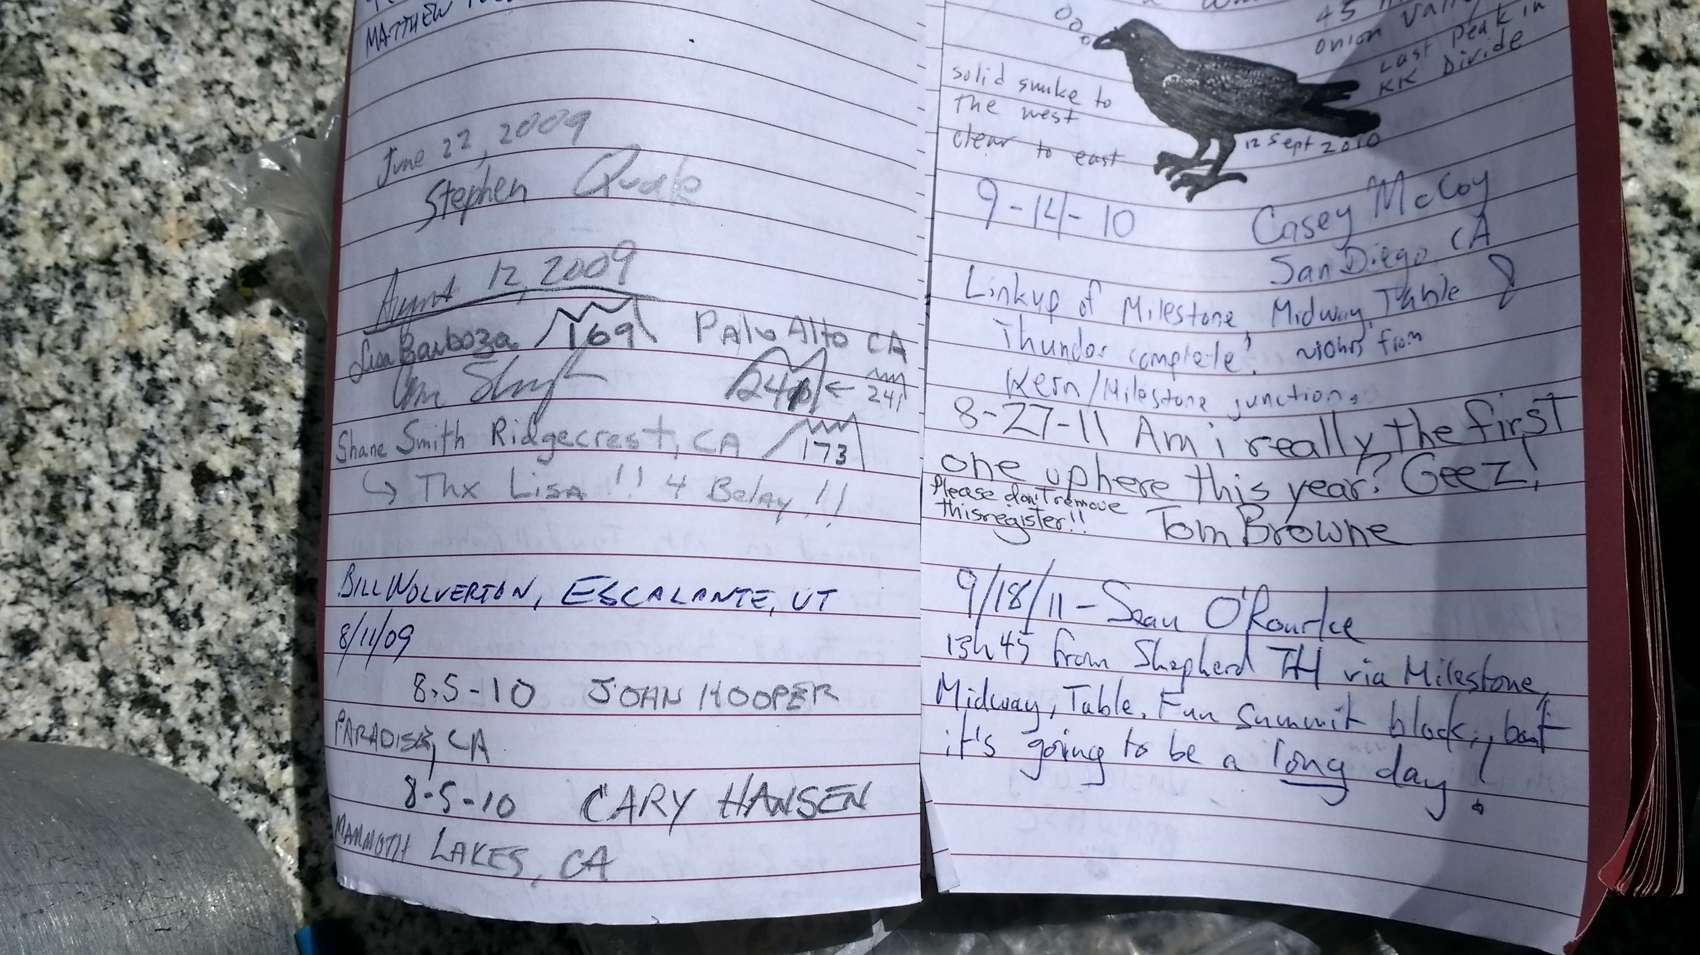 MATTHEW
June 22, 2009
Stephen Quale
August 12, 2009
Lisa Barboza 169 Palo Alto CA
241 ← 241
Shane Smith Ridgecrest, CA 173
↳ Thx Lisa !! 4 Belay !!
BILL WOLVERTON, ESCALANTE, UT
8/11/09
8-5-10 JOHN HOOPER
PARADISE, CA
8-5-10 CARY HANSEN
MAMMOTH LAKES, CA
45
onion Valley
Last Peak in
KK Divide
solid smoke to
the west
clear to east
12 Sept 2010
9-14-10 Casey McCoy
San Diego CA
Linkup of Milestone, Midway, Table &
Thunder complete! ~10hrs from
Kern/Milestone junction.
8-27-11 Am i really the first
one up here this year? Geez!
Please don't remove
this register!! Tom Browne
9/18/11 - Sean O'Rourke
13h45 from Shepherd TH via Milestone,
Midway, Table. Fun summit block, but
it's going to be a long day!